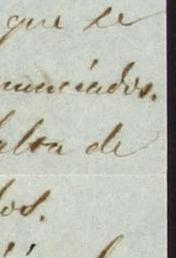 que se
nunciados.
alta de
los.